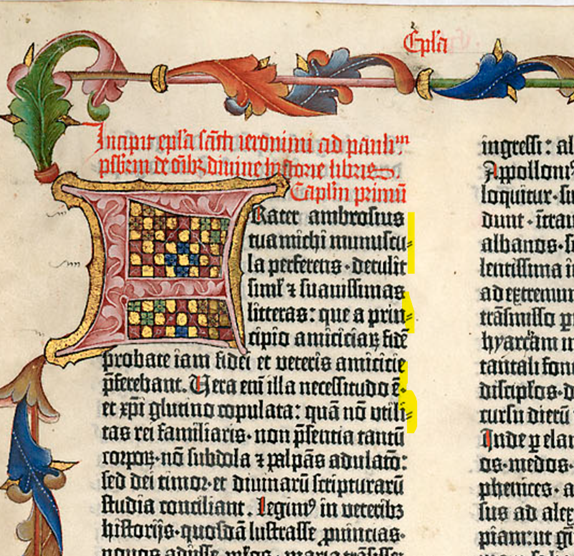 Epl̃a
Incipit epl̃a sãcti ieronimi ad paulinũ
pſbiterũ de õĩbȝ diuine hiſtorie libris
Capl̃m primũ
Frater ambroſius
tua michi munuſcu-
la perferens· detulit
ſiml̛ ⁊ ſuauiſſimas
litteras: que a prin-
cipio amiciciaꝝ fidẽ
probate iam fidei et veteris amicicie
p̃ferebant. Uera em̃ illa neceſſitudo ẽ·
et xp̃i glutino copulata: quã nõ vtili-
tas rei familiaris· non p̃ſentia tantũ
corpoꝝ· nõ ſubdola ⁊ palpãs adulatõ:
ſed dei timor· et diuinarũ ſcripturarũ
ſtudia conciliant. Legimꝰ in veteribȝ
hiſtorijs· quoſdã luſtraſſe ꝓuincias·
nouos adijſſe pl̃os· maria trãſiſſe
ingreſſi: al
Appollonꝰ
loquitur· ſu
dunt· ĩtrau
albanos· ſ
lentiſſima ĩ
ad extremum
trãſmiſſo p
hyarcam ĩ
tantali fon
diſcipl̃os· de
curſu dierũ
Inde ꝑ elam
os· medos·
phenices· a
ſus ad alex
piam: ut gi